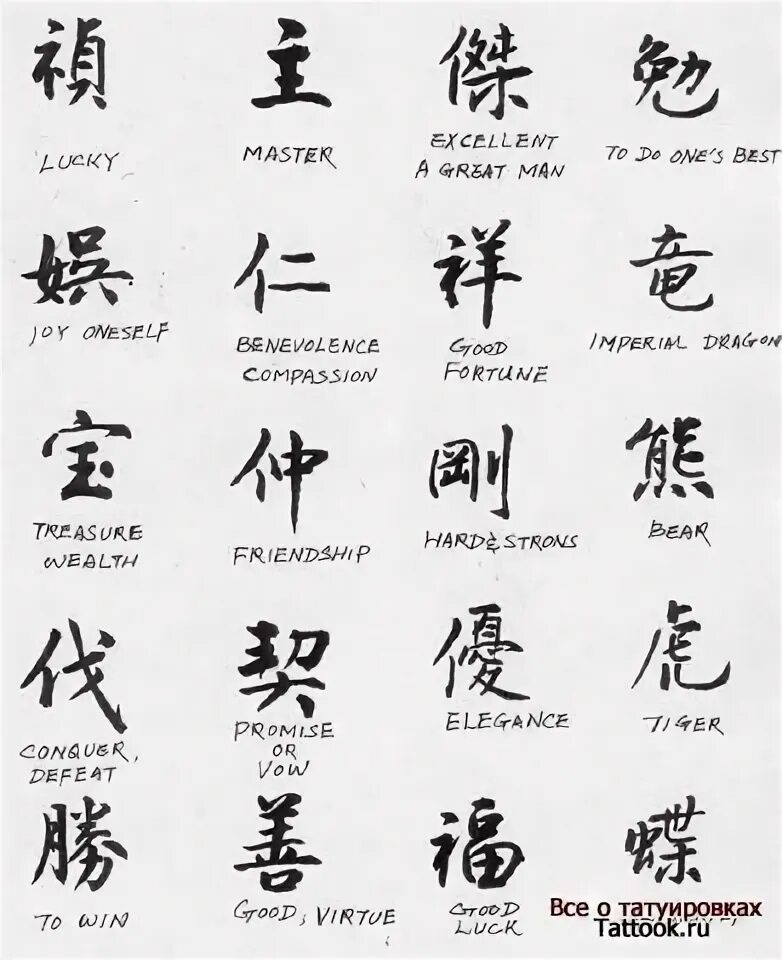 禎 主 傑 勉
LUCKY MASTER EXCELLENT A GREAT MAN TO DO ONE'S BEST
娯 仁 祥 竜
JOY ONESELF BENEVOLENCE COMPASSION GOOD FORTUNE IMPERIAL DRAGON
宝 仲 剛 熊
TREASURE WEALTH FRIENDSHIP HARD & STRONS BEAR
伐 契 優 虎
CONQUER, DEFEAT PROMISE OR VOW ELEGANCE TIGER
勝 善 福 蝶
TO WIN GOOD, VIRTUE GOOD LUCK
Все о татуировках
Tattook.ru